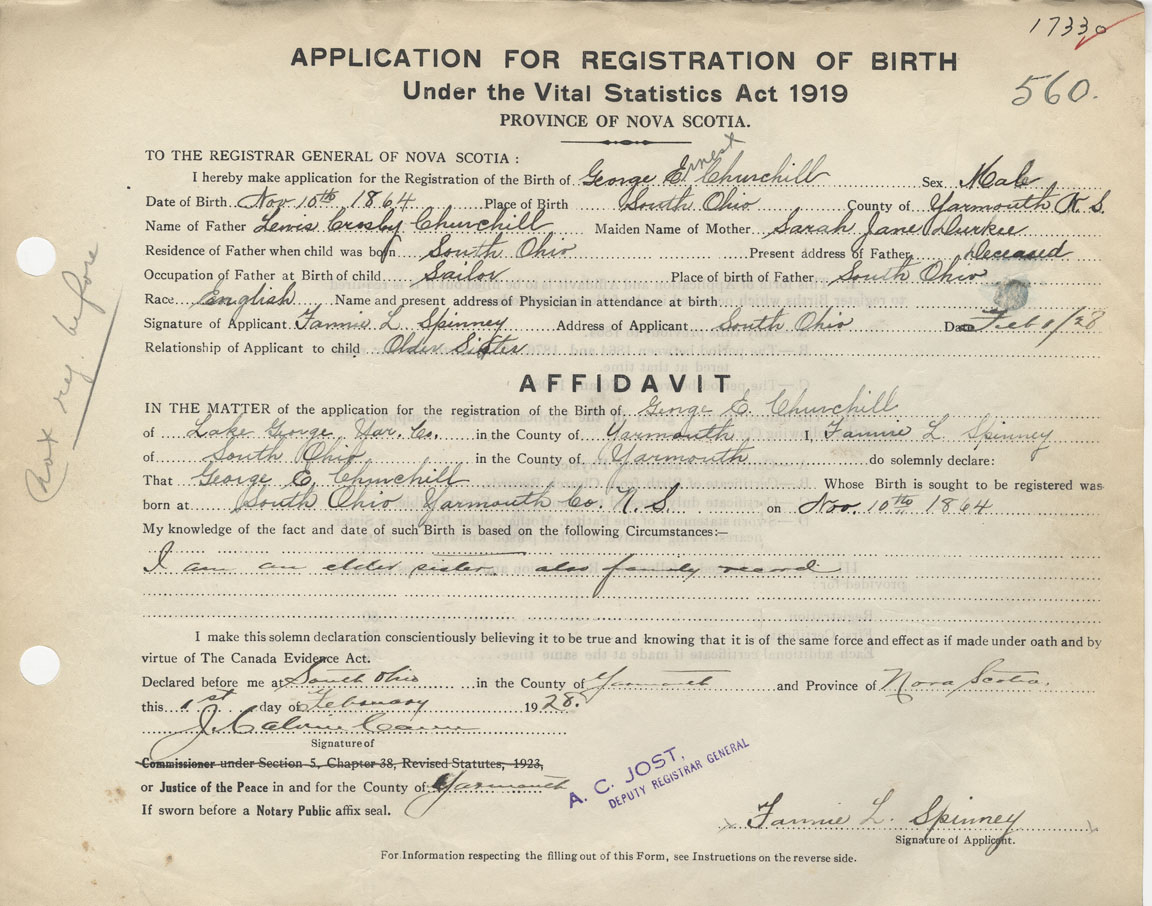 17330
560.
APPLICATION FOR REGISTRATION OF BIRTH
Under the Vital Statistics Act 1919
PROVINCE OF NOVA SCOTIA.
TO THE REGISTRAR GENERAL OF NOVA SCOTIA :
I hereby make application for the Registration of the Birth of George Ernest Churchill Sex Male
Date of Birth Nov 10th 1864 Place of Birth South Ohio County of Yarmouth N.S.
Name of Father Lewis Crosby Churchill Maiden Name of Mother Sarah Jane Durkee
Residence of Father when child was born South Ohio Present address of Father Deceased
Occupation of Father at Birth of child Sailor Place of birth of Father South Ohio
Race English Name and present address of Physician in attendance at birth
Signature of Applicant Fannie L Spinney Address of Applicant South Ohio Date Feb 1/28
Relationship of Applicant to child Older Sister
Not reg. before
AFFIDAVIT
IN THE MATTER of the application for the registration of the Birth of George E. Churchill
of Lake George Yar. Co. in the County of Yarmouth I, Fannie L Spinney
of South Ohio in the County of Yarmouth do solemnly declare:
That George E. Churchill Whose Birth is sought to be registered was
born at South Ohio Yarmouth Co. N. S. on Nov. 10th 1864
My knowledge of the fact and date of such Birth is based on the following Circumstances:—
I am an elder sister. also family record
I make this solemn declaration conscientiously believing it to be true and knowing that it is of the same force and effect as if made under oath and by
virtue of The Canada Evidence Act.
Declared before me at South Ohio in the County of Yarmouth and Province of Nova Scotia.
this 1st day of February 1928.
J. Calvin
Signature of
Commissioner under Section 5, Chapter 38, Revised Statutes, 1923,
or Justice of the Peace in and for the County of Yarmouth
If sworn before a Notary Public affix seal.
A. C. JOST,
DEPUTY REGISTRAR GENERAL
Fannie L. Spinney
Signature of Applicant.
For Information respecting the filling out of this Form, see Instructions on the reverse side.